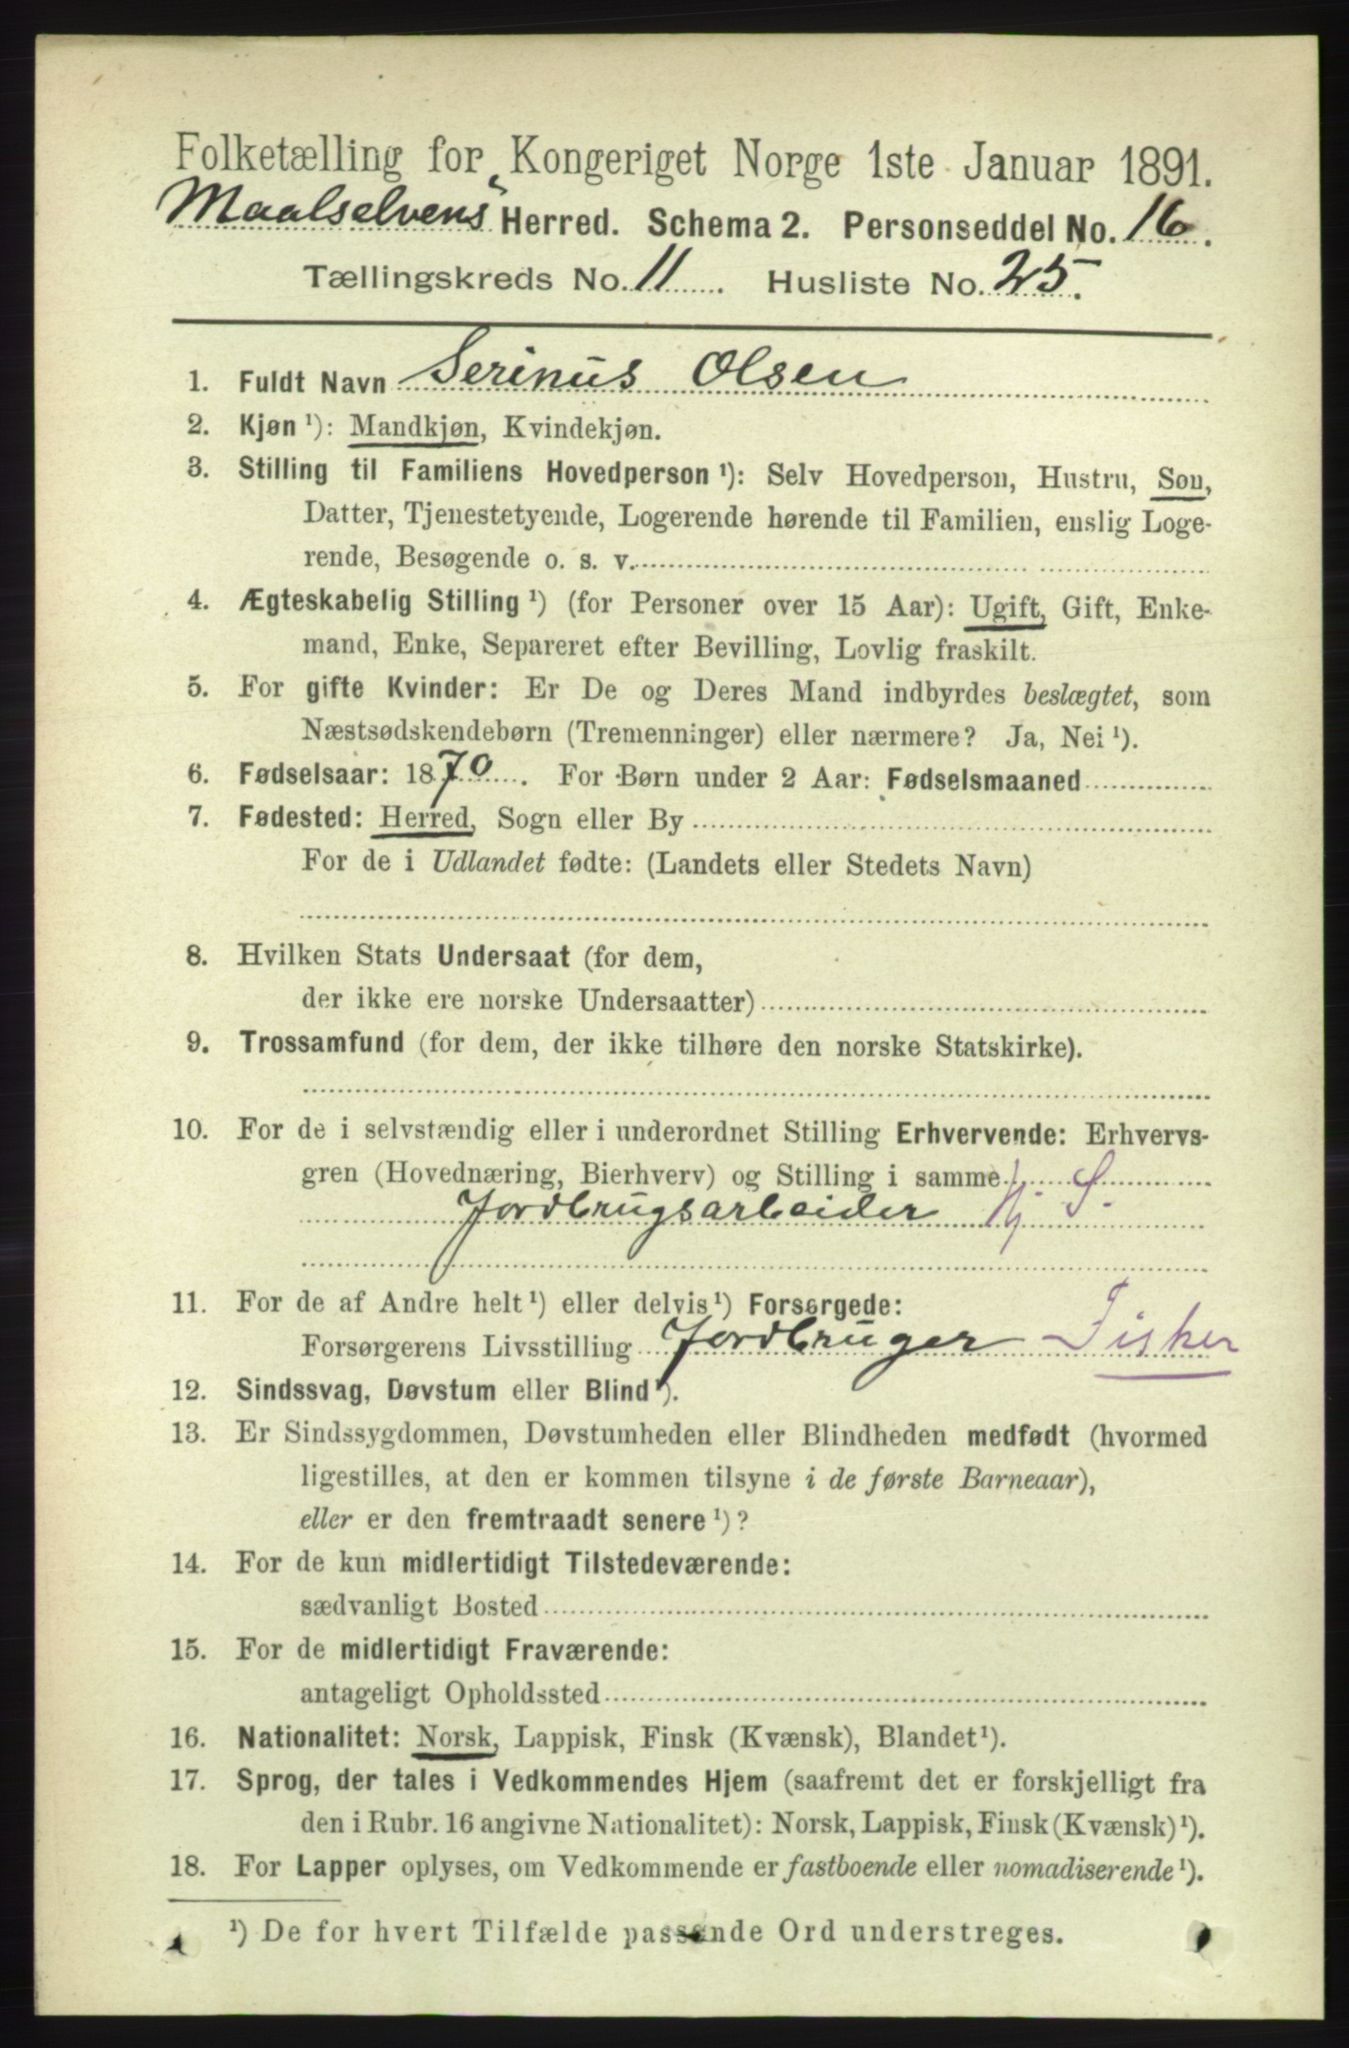 Folketælling for Kongeriget Norge 1ste Januar 1891.
Maalselvens Herred. Schema 2. Personseddel No. 16.
Tællingskreds No. 11. Husliste No. 25.
1. Fuldt Navn Serinus Olsen
2. Kjøn ¹): Mandkjøn, Kvindekjøn.
3. Stilling til Familiens Hovedperson ¹): Selv Hovedperson, Hustru, Søn,
Datter, Tjenestetyende, Logerende hørende til Familien, enslig Loge-
rende, Besøgende o. s. v.
4. Ægteskabelig Stilling ¹) (for Personer over 15 Aar): Ugift, Gift, Enke-
mand, Enke, Separeret efter Bevilling, Lovlig fraskilt.
5. For gifte Kvinder: Er De og Deres Mand indbyrdes beslægtet, som
Næstsødskendebørn (Tremenninger) eller nærmere? Ja, Nei ¹).
6. Fødselsaar: 1870. For Børn under 2 Aar: Fødselsmaaned
7. Fødested: Herred, Sogn eller By
For de i Udlandet fødte: (Landets eller Stedets Navn)
8. Hvilken Stats Undersaat (for dem,
der ikke ere norske Undersaatter)
9. Trossamfund (for dem, der ikke tilhøre den norske Statskirke).
10. For de i selvstændig eller i underordnet Stilling Erhvervende: Erhvervs-
gren (Hovednæring, Bierhverv) og Stilling i samme
Jordbrugsarbeider S.
11. For de af Andre helt ¹) eller delvis ¹) Forsørgede:
Forsørgerens Livsstilling Jordbruger Fisker
12. Sindssvag, Døvstum eller Blind ¹).
13. Er Sindssygdommen, Døvstumheden eller Blindheden medfødt (hvormed
ligestilles, at den er kommen tilsyne i de første Barneaar),
eller er den fremtraadt senere ¹)?
14. For de kun midlertidigt Tilstedeværende:
sædvanligt Bosted
15. For de midlertidigt Fraværende:
antageligt Opholdssted
16. Nationalitet: Norsk, Lappisk, Finsk (Kvænsk), Blandet ¹).
17. Sprog, der tales i Vedkommendes Hjem (saafremt det er forskjelligt fra
den i Rubr. 16 angivne Nationalitet): Norsk, Lappisk, Finsk (Kvænsk) ¹).
18. For Lapper oplyses, om Vedkommende er fastboende eller nomadiserende ¹).
¹) De for hvert Tilfælde passende Ord understreges.